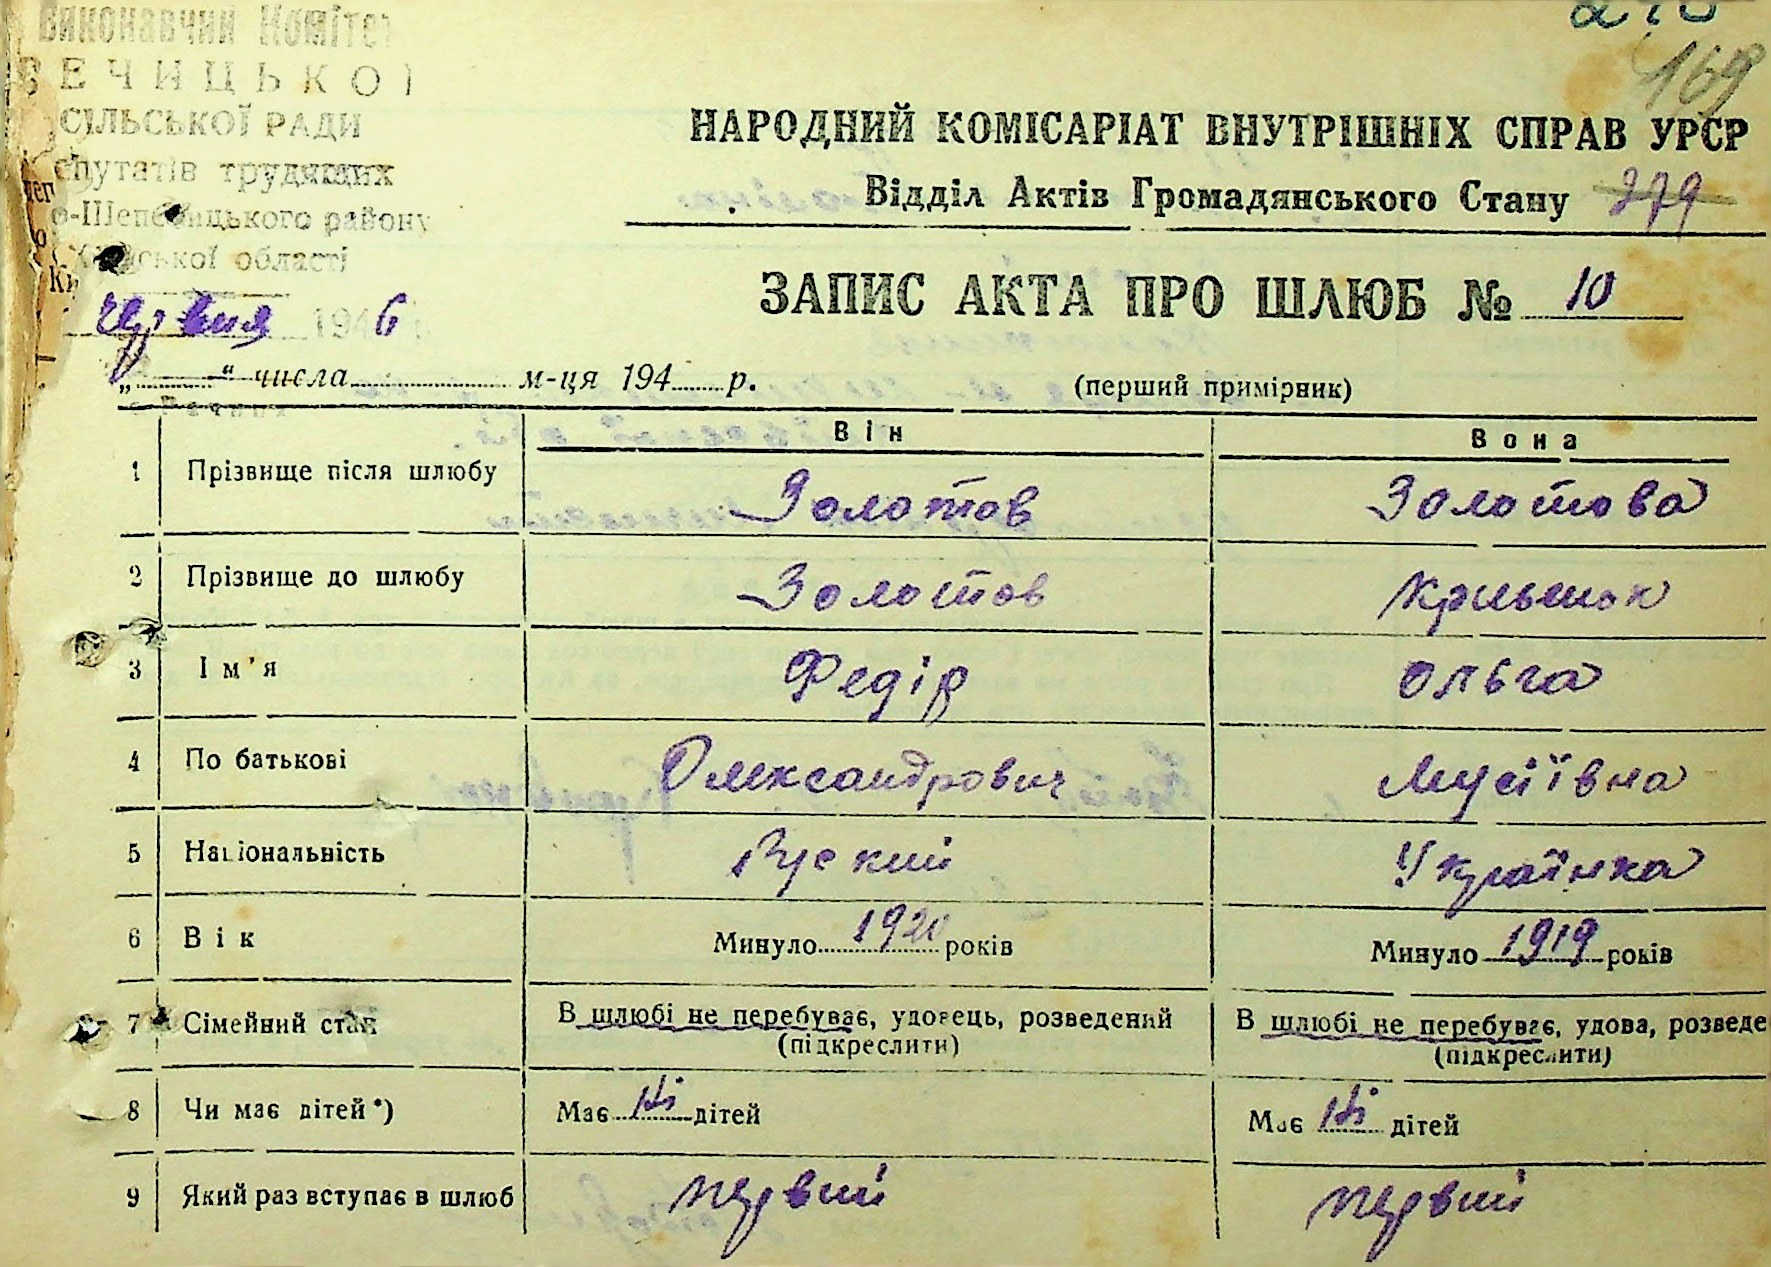 Виконавчий Комітет
ВЕЧИЦЬКОЇ
СІЛЬСЬКОЇ РАДИ
депутатів трудящих
області
червня 1946
169
НАРОДНИЙ КОМІСАРІАТ ВНУТРІШНІХ СПРАВ УРСР
Відділ Актів Громадянського Стану 279
ЗАПИС АКТА ПРО ШЛЮБ № 10
„ “ числа м-ця 194 р.
(перший примірник)
Він Вона
1 Прізвище після шлюбу Золотов Золотова
2 Прізвище до шлюбу Золотов
3 Ім'я Федір Ольга
4 По батькові Олександрович Мусіївна
5 Національність Руский Українка
6 Вік Минуло 1920 років Минуло 1919 років
7 Сімейний стан В шлюбі не перебуває, удовець, розведений В шлюбі не перебуває, удова, розведе
(підкреслити) (підкреслити)
8 Чи має дітей*) Має Ні дітей Має Ні дітей
9 Який раз вступає в шлюб первий первий